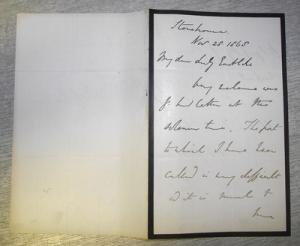 Stonehouse
Nov 28 1868
My dear Lady
very welcome was
letter at this
time. The post
to which I have been
called is very difficult
& it is much to